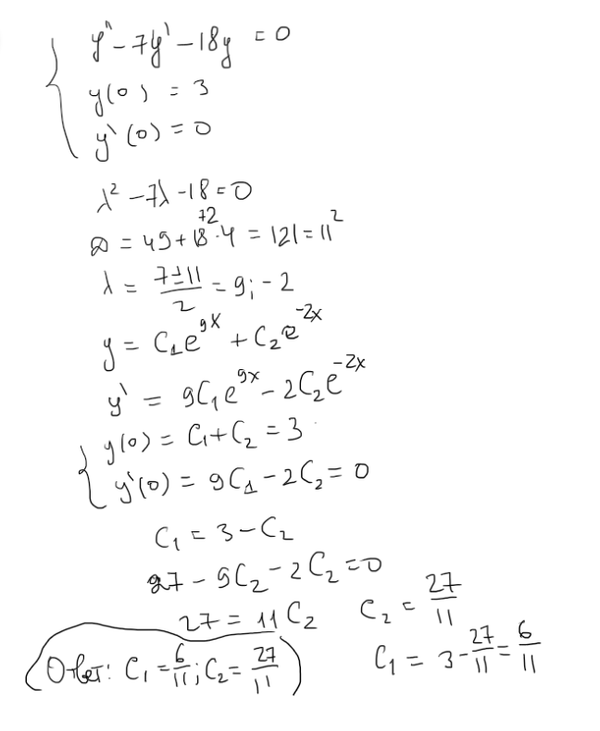 y'' - 7y' - 18y = 0
y(0) = 3
y'(0) = 0
λ² - 7λ - 18 = 0
D = 49 + 18·4 = 121 = 11²
72
λ = (7±11)/2 = 9; -2
y = C₁e^{9x} + C₂e^{-2x}
y' = 9C₁e^{9x} - 2C₂e^{-2x}
y(0) = C₁ + C₂ = 3
y'(0) = 9C₁ - 2C₂ = 0
C₁ = 3 - C₂
27 - 9C₂ - 2C₂ = 0
27 = 11C₂
C₂ = 27/11
C₁ = 3 - 27/11 = 6/11
Ответ: C₁ = 6/11; C₂ = 27/11